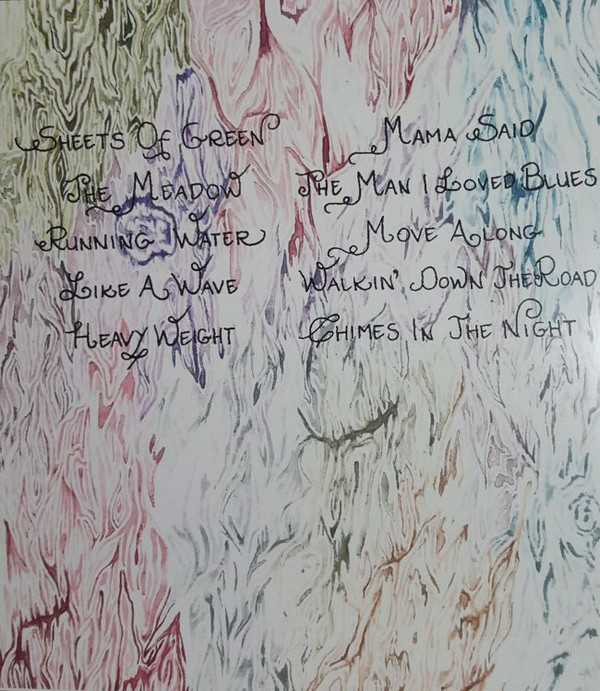 Sheets Of Green
The Meadow
Running Water
Like A Wave
Heavy Weight
Mama Said
The Man I Loved Blues
Move Along
Walkin' Down The Road
Chimes In The Night